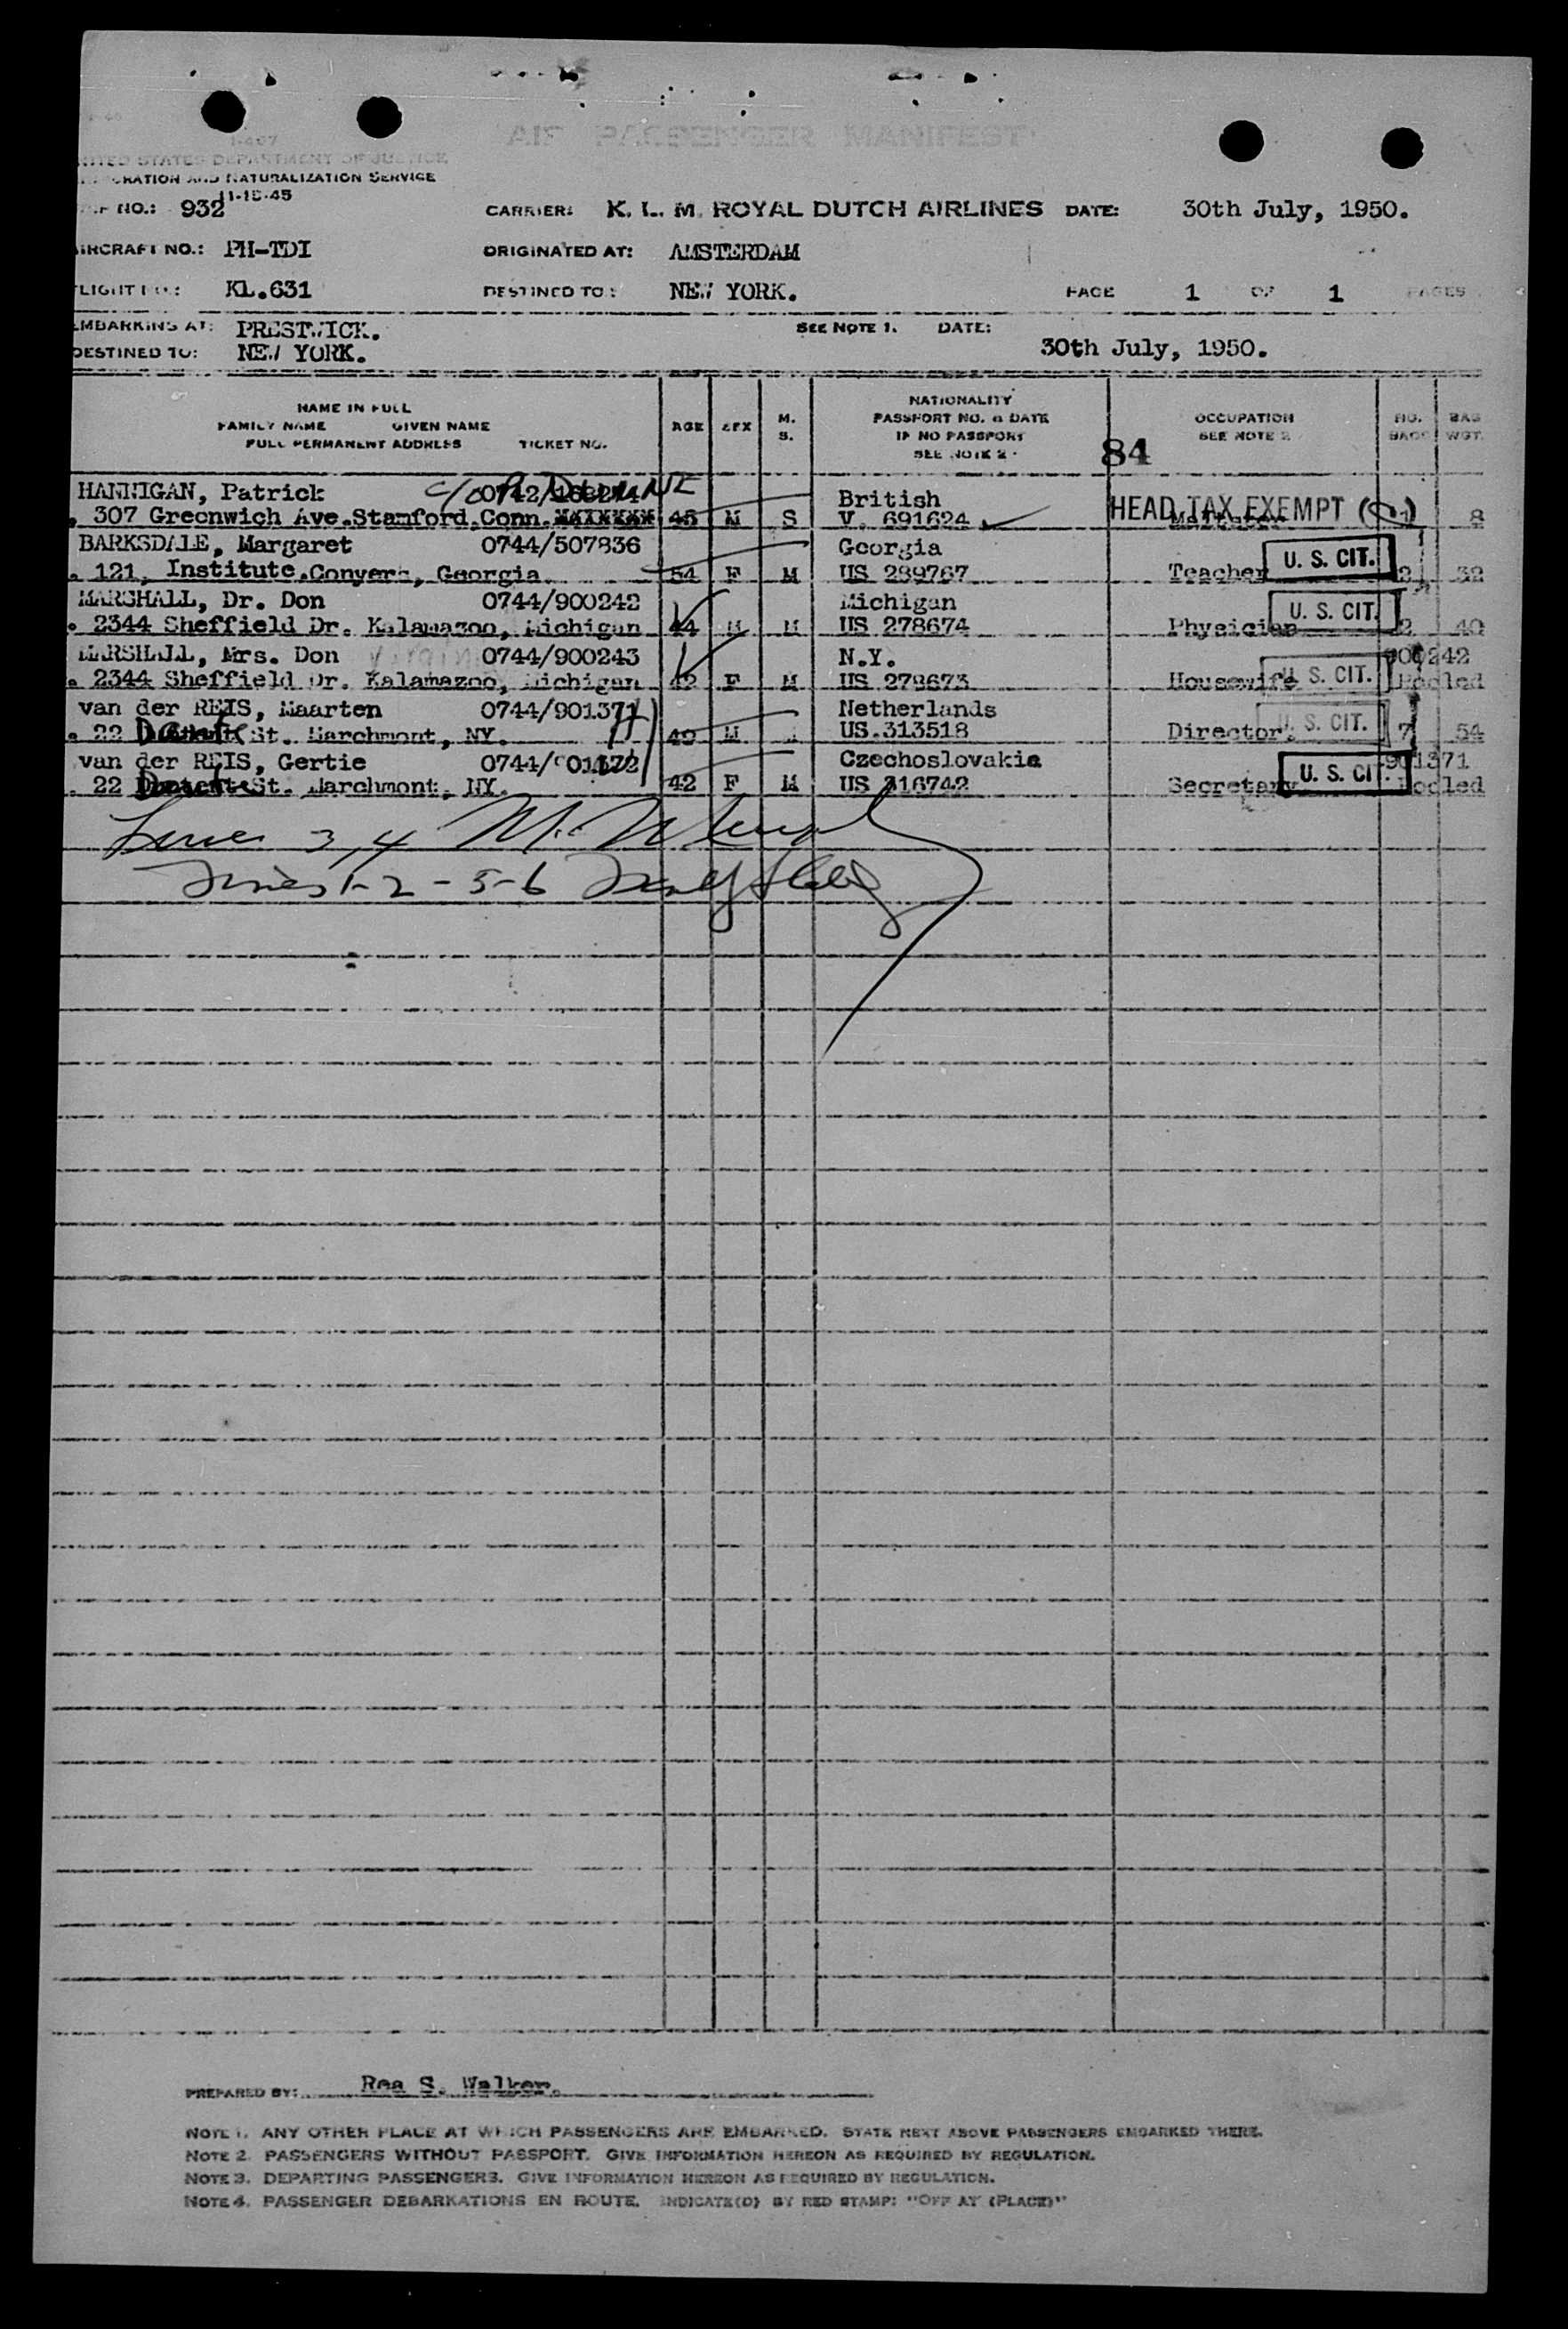 AIR PASSENGER MANIFEST
I-467
UNITED STATES DEPARTMENT OF JUSTICE
IMMIGRATION AND NATURALIZATION SERVICE
11-15-45
NO.: 932 CARRIER: K. L. M. ROYAL DUTCH AIRLINES DATE: 30th July, 1950.
AIRCRAFT NO.: PH-TDI ORIGINATED AT: AMSTERDAM
FLIGHT NO.: KL.631 DESTINED TO: NEW YORK. PAGE 1 OF 1 PAGES
EMBARKING AT: PRESTWICK. SEE NOTE 1. DATE:
DESTINED TO: NEW YORK. 30th July, 1950.
NAME IN FULL
FAMILY NAME GIVEN NAME
FULL PERMANENT ADDRESS TICKET NO.
AGE SEX M. S.
NATIONALITY
PASSPORT NO. & DATE
IF NO PASSPORT
SEE NOTE 2
OCCUPATION
SEE NOTE 2
NO. BAGS
BAG WGT.
84
HANNIGAN, Patrick C/O British
307 Greenwich Ave.Stamford,Conn. 45 M S V. 691624 HEAD TAX EXEMPT 1 8
BARKSDALE, Margaret 0744/507836 Georgia
121, Institute.Conyers, Georgia. 54 F M US 289767 Teacher U. S. CIT. 2 32
MARSHALL, Dr. Don 0744/900242 Michigan
2344 Sheffield Dr. Kalamazoo, Michigan 44 M M US 278674 Physician U. S. CIT. 2 40
MARSHALL, Mrs. Don 0744/900243 N.Y. 900242
2344 Sheffield Dr. Kalamazoo, Michigan 42 F M US 278673 Housewife U. S. CIT. Pooled
van der REIS, Maarten 0744/901371 Netherlands
22 St. Marchmont, NY. 49 M US.313518 Director. U. S. CIT. 7 54
van der REIS, Gertie 0744/901372 Czechoslovakia 901371
22 St. Marchmont, NY. 42 F M US 316742 Secretary U. S. CIT. Pooled
Lines 3,4
Lines 1-2-5-6
PREPARED BY: Rea S. Walker.
NOTE 1. ANY OTHER PLACE AT WHICH PASSENGERS ARE EMBARKED. STATE NEXT ABOVE PASSENGERS EMBARKED THERE.
NOTE 2. PASSENGERS WITHOUT PASSPORT. GIVE INFORMATION HEREON AS REQUIRED BY REGULATION.
NOTE 3. DEPARTING PASSENGERS. GIVE INFORMATION HEREON AS REQUIRED BY REGULATION.
NOTE 4. PASSENGER DEBARKATIONS EN ROUTE. INDICATE(D) BY RED STAMP: "OFF AT (PLACE)"